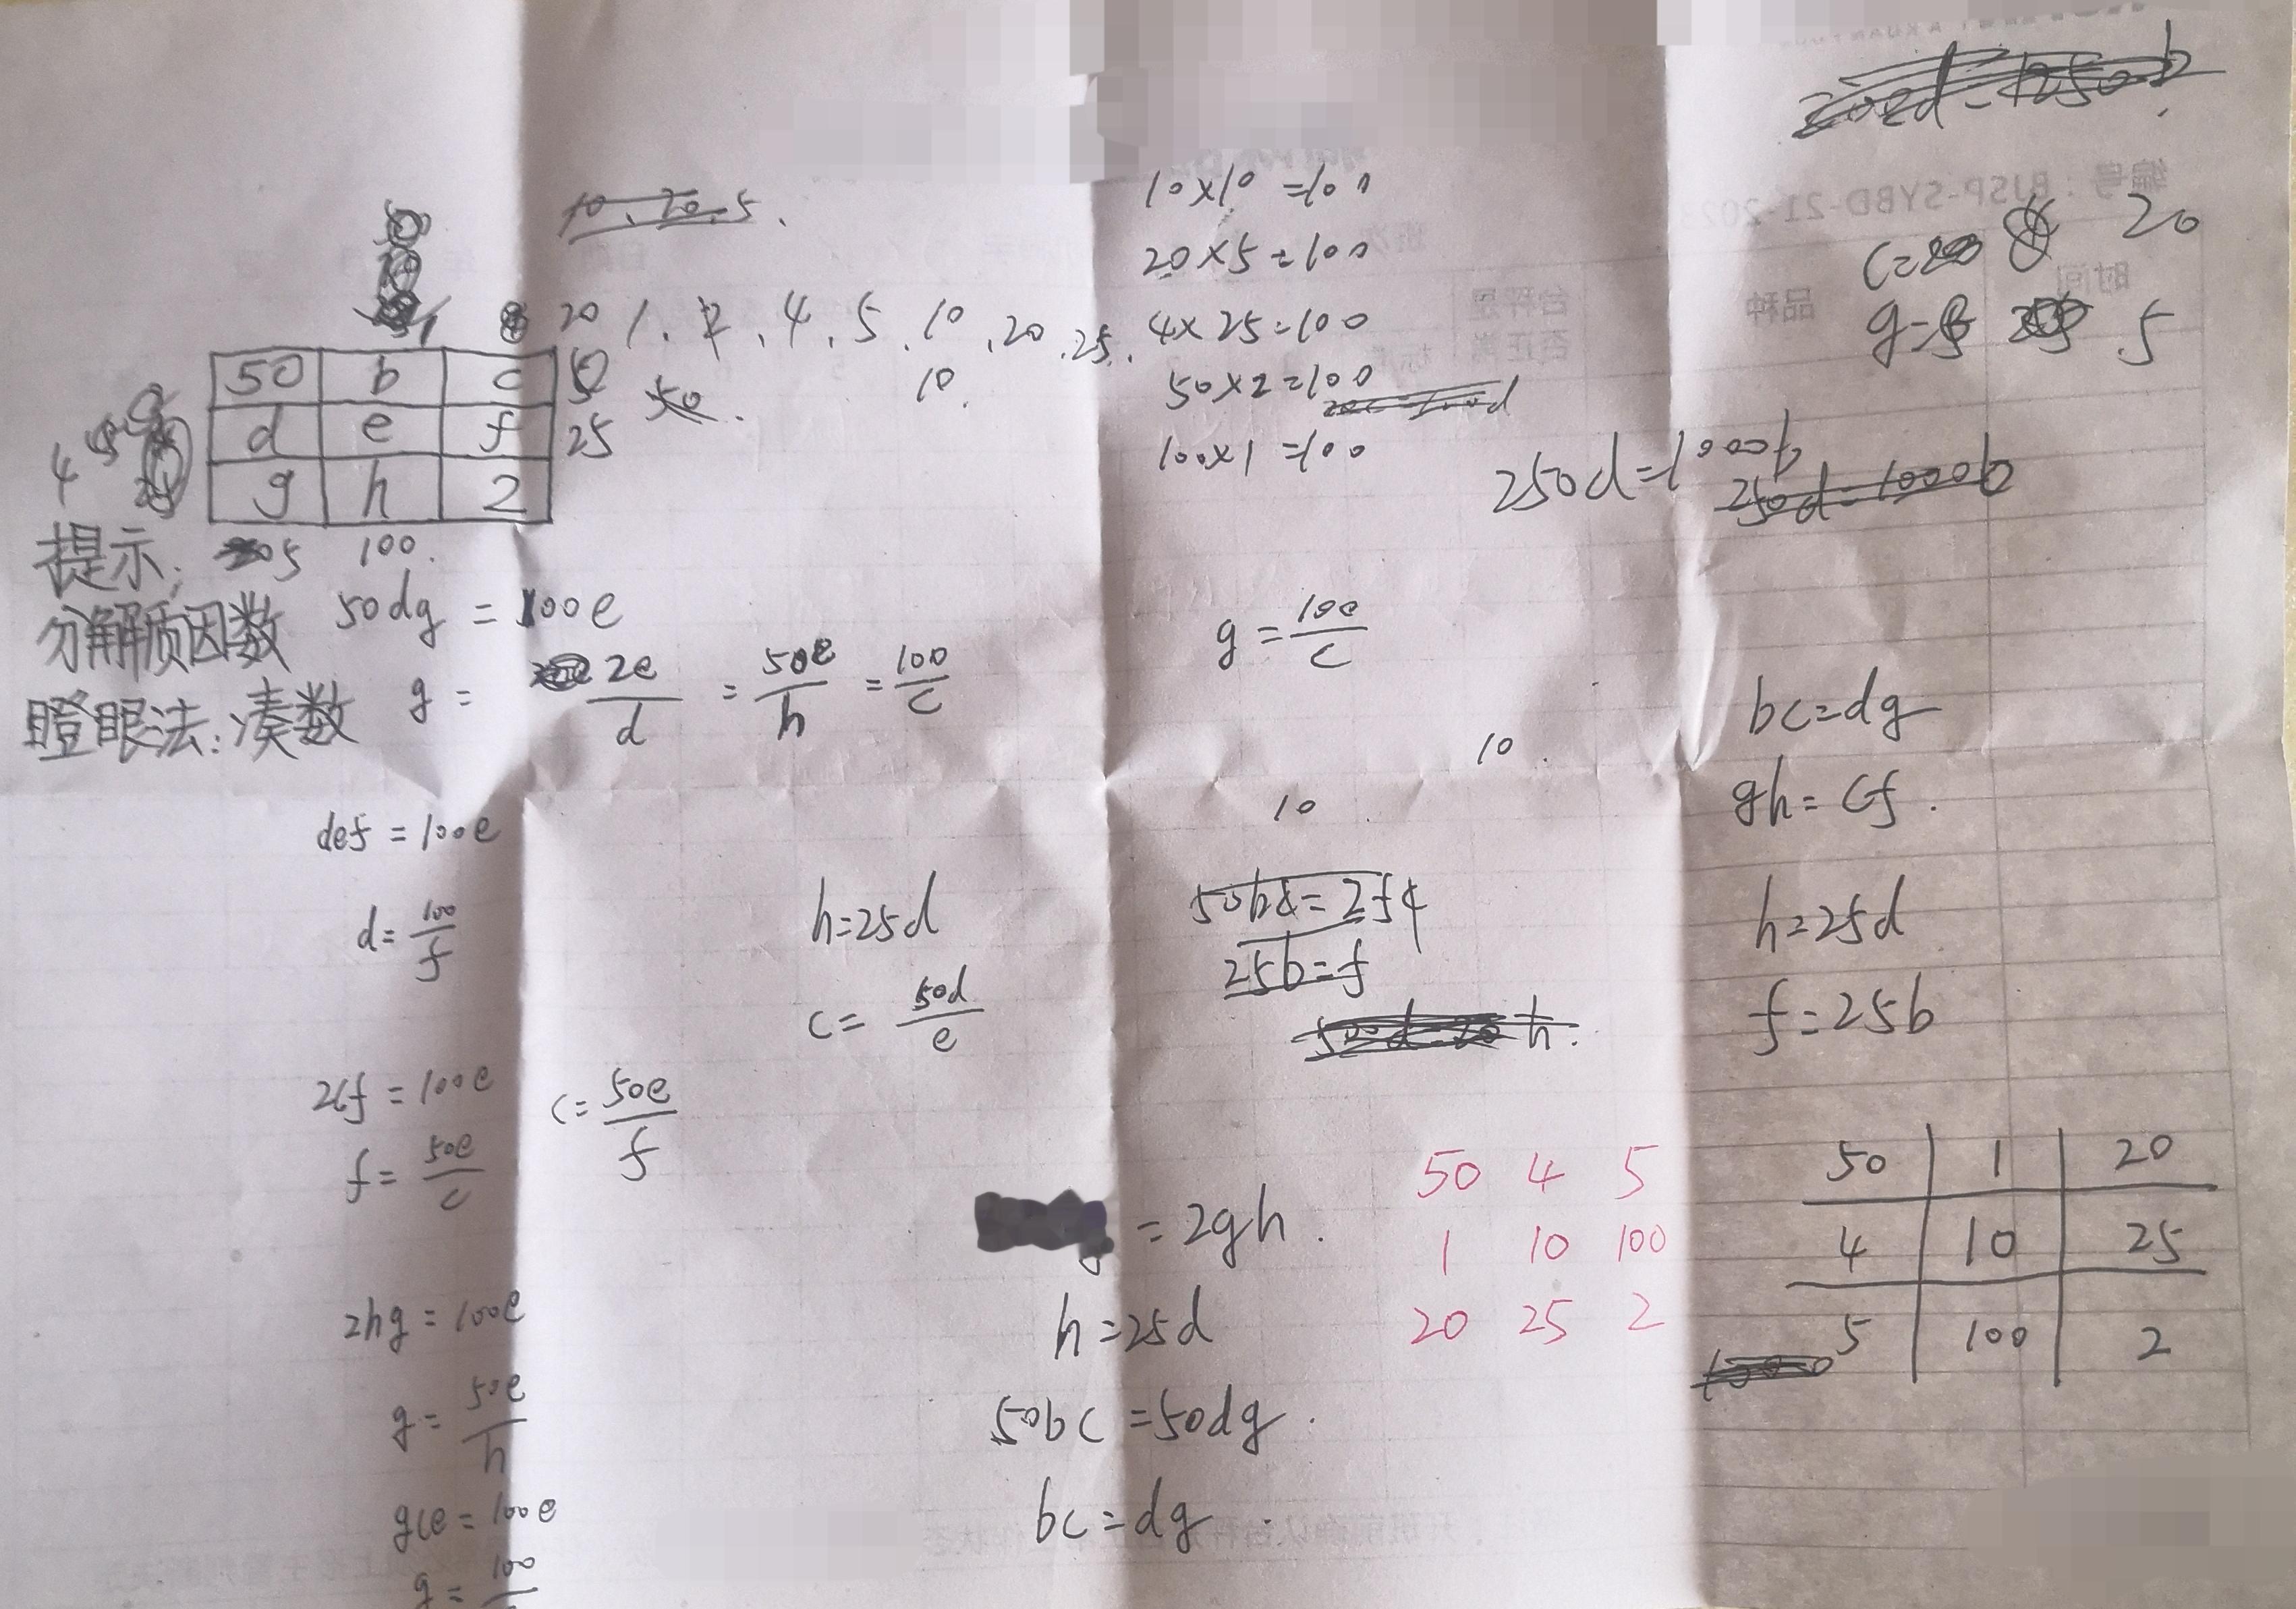 10、20、5.
20
1、2、4、5、10、20、25.
50 b c
50.
10.
d e f
25
4
g h 2
5 100.
提示:
分解质因数
瞪眼法:凑数
50dg = 100e
g = 2e/d = 50e/h = 100/c
def = 100e
d = 100/f
2cf = 100e
c = 50e/f
f = 50e/c
2hg = 100e
g = 50e/h
gce = 100e
g = 100
h=25d
c = 50d/e
10×10 =100
20×5=100
4×25=100
50×2=100
100×1=100
g = 100/c
10
10.
25b=f
h.
= 2gh.
h=25d
50bc =50dg.
bc=dg
50 4 5
1 10 100
20 25 2
c= 20
g= 5
250d=1000b
250d=1000b
bc=dg
gh=cf.
h=25d
f=25b
50 1 20
4 10 25
5 100 2
编号:BJSP-SYBD-21-202
时间
品种
台秤是
否正常